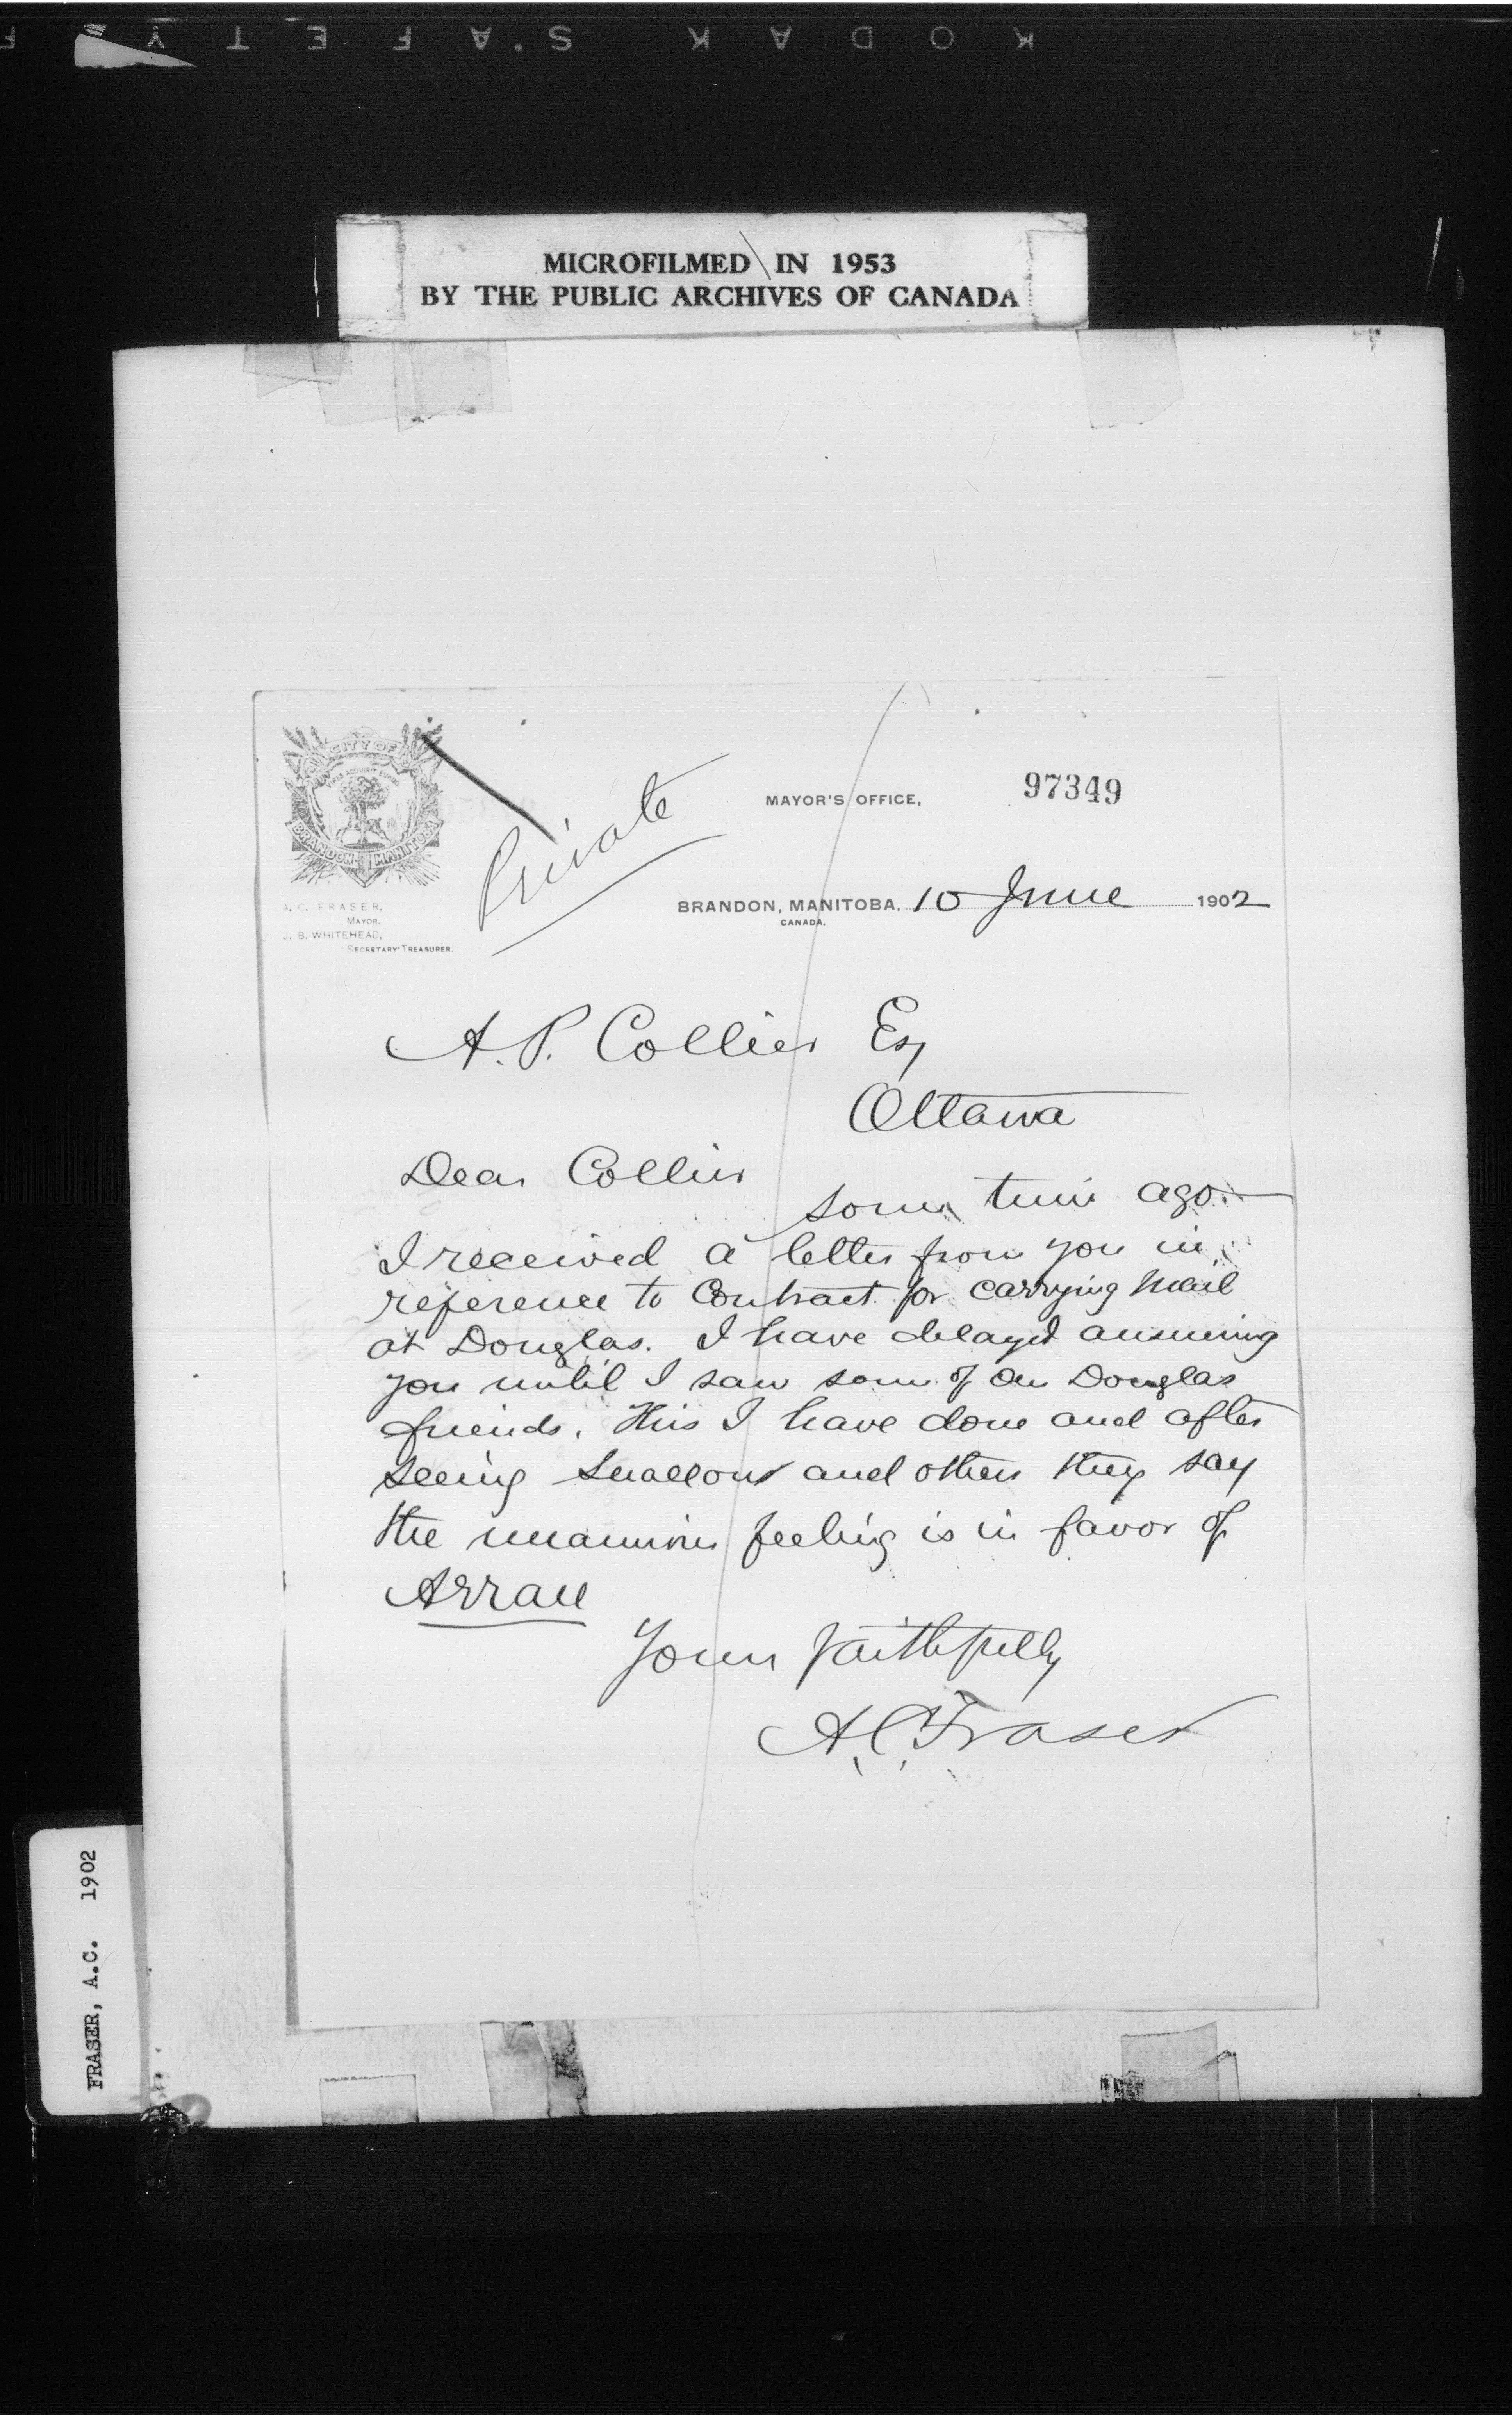 KODAK SAFETY F
MICROFILMED IN 1953
BY THE PUBLIC ARCHIVES OF CANADA
CITY OF
BRANDON MANITOBA
A. C. FRASER,
MAYOR.
J. B. WHITEHEAD,
SECRETARY-TREASURER.
Private
MAYOR'S OFFICE,
97349
BRANDON, MANITOBA, 10 June 1902
CANADA.
A. P. Collier Esq
Ottawa
Dear Collier
some time ago
I received a letter from you in
reference to Contract for carrying mail
at Douglas. I have delayed answering
you until I saw some of our Douglas
friends. This I have done and after
seeing and others they say
the unanimous feeling is in favor of
Arran
Yours faithfully
A.C. Fraser
FRASER, A.C. 1902